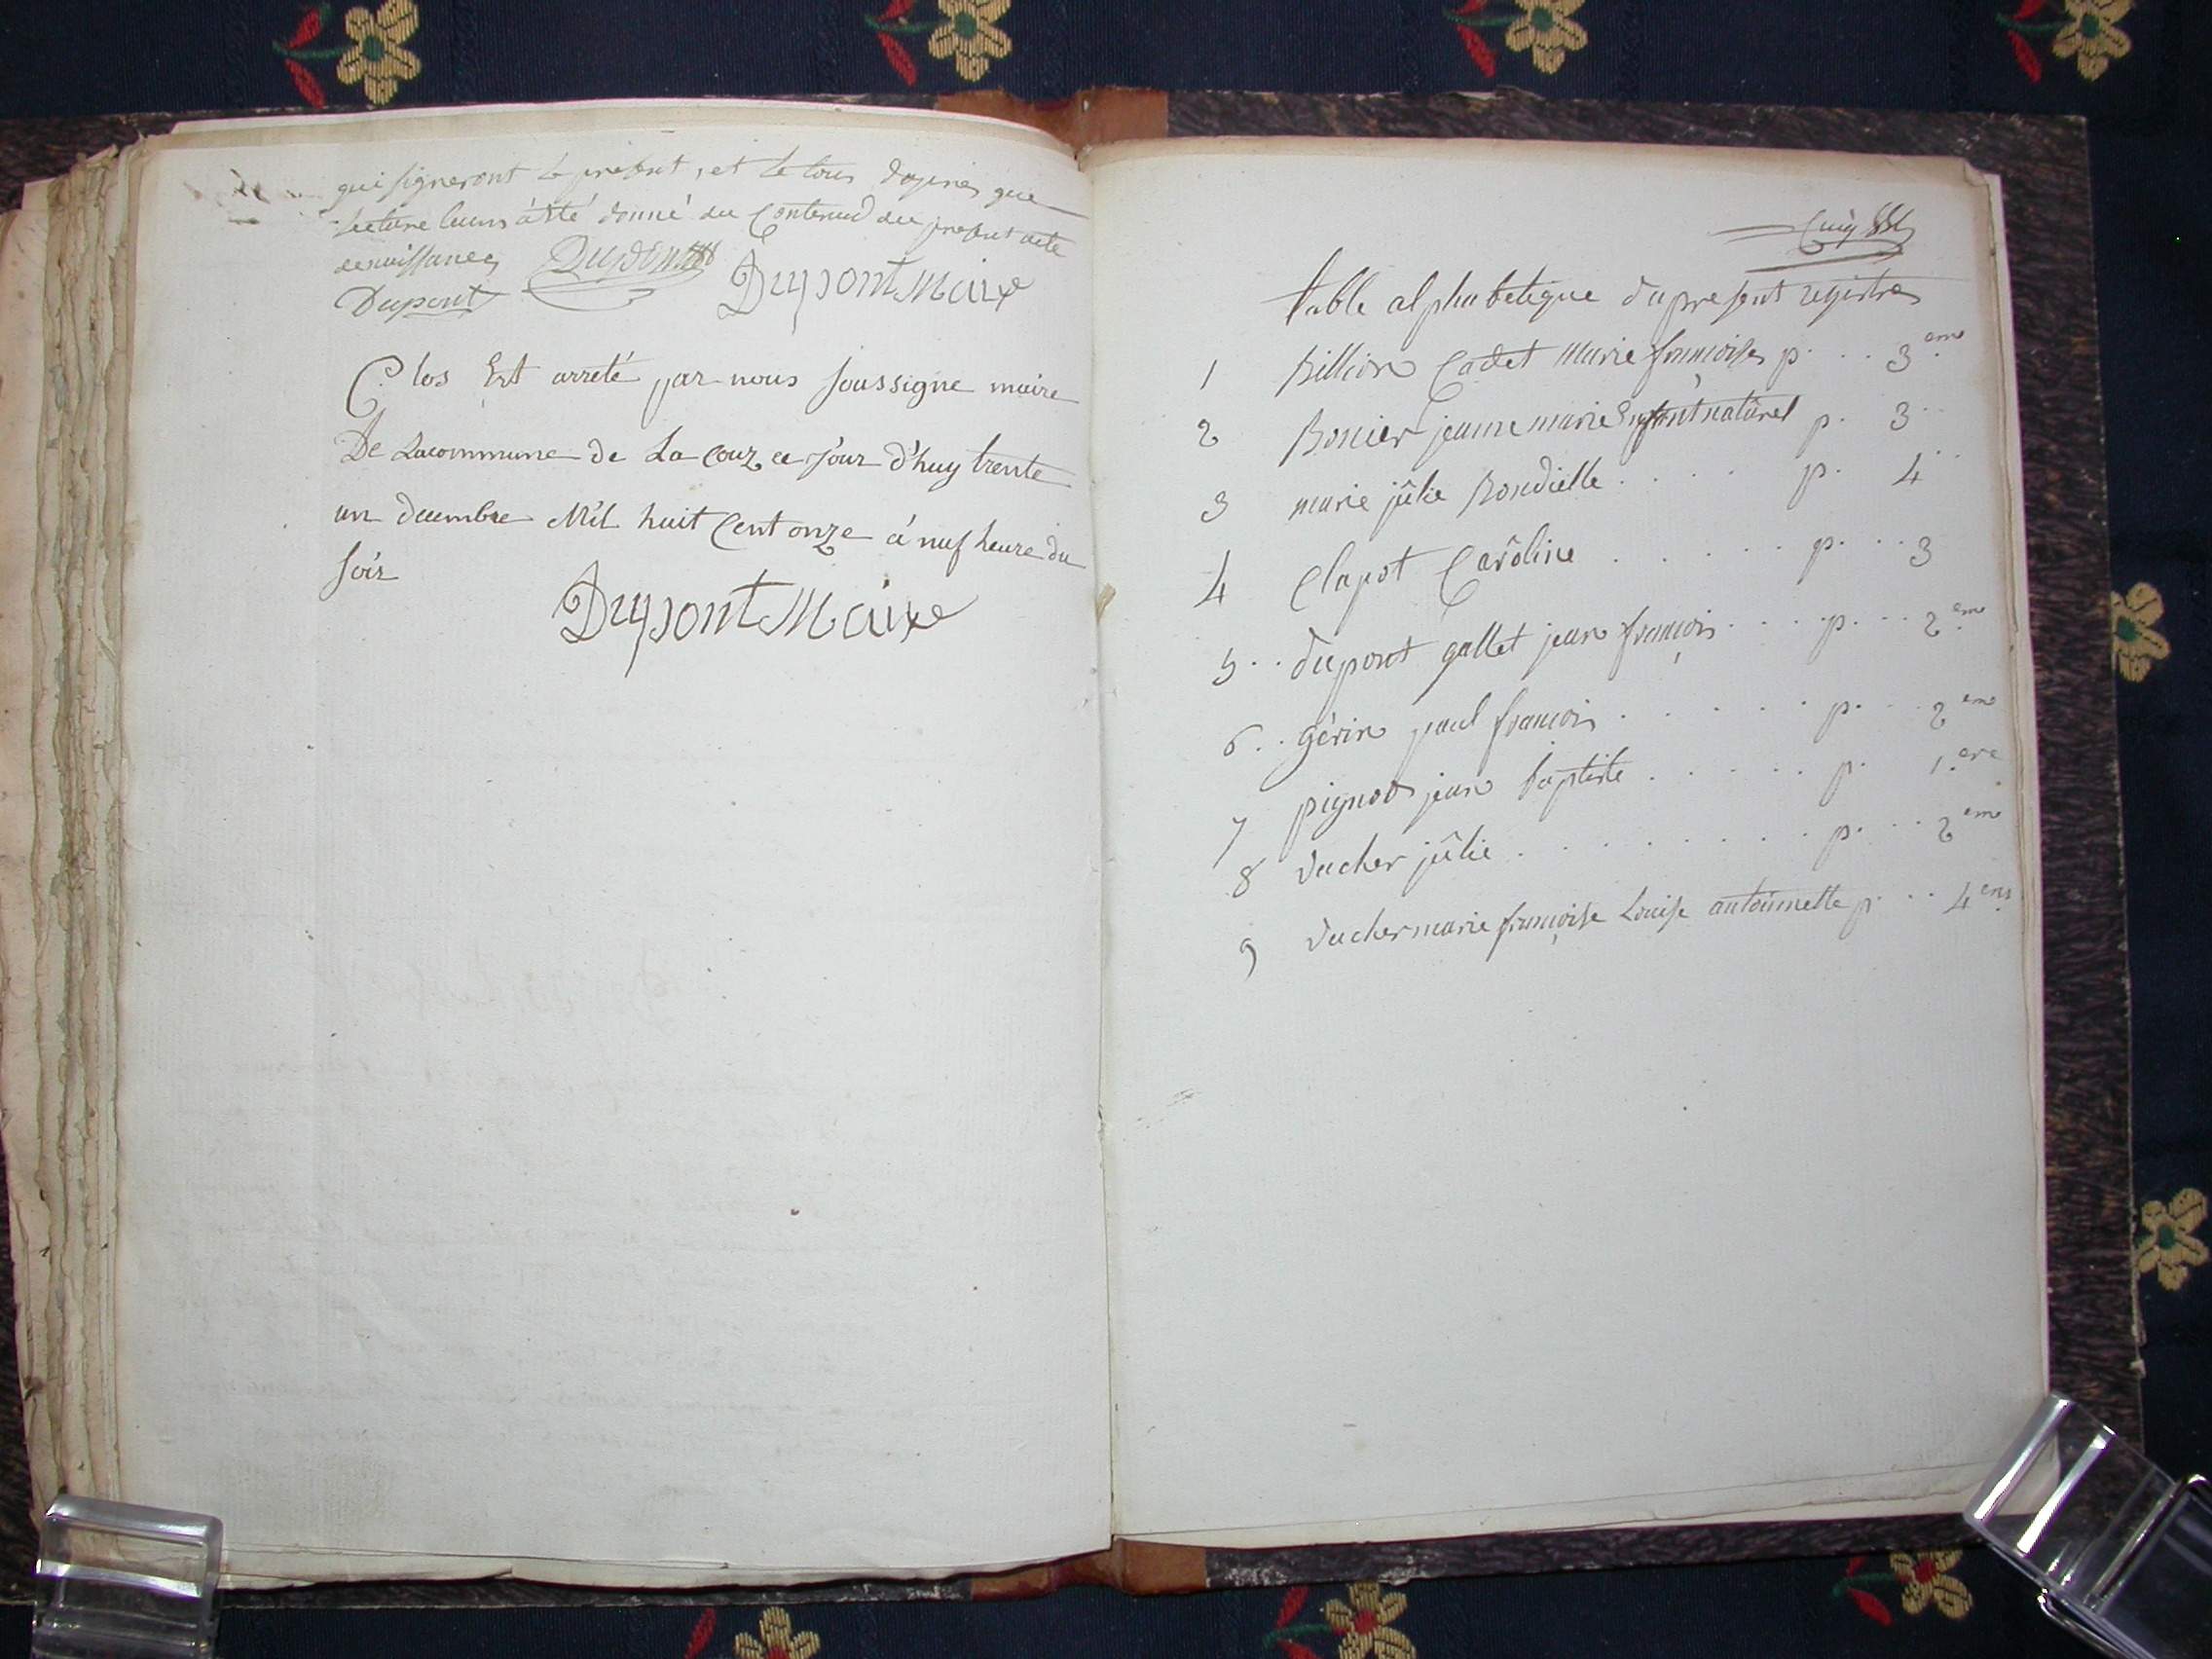 qui signeront le présent, et le tous d'apires que
lecture leurs à été donné du Contenud du present acte
de naissances
Dupont Dupont Maire
Clos Est arreté par nous soussigne maire
De Lacommune de La Couz ce jour d'huy trente
un decembre Mil huit Cent onze à neuf heure du
soir
Dupont Maire
table alphabetique du present registres
1 Billion Cadet marie françoise p. . . 3.eme
2 Bonier jeanne marie Enfant naturel p. 3
3 marie jûlie Bondielle . . . . p. 4
4 Clapot Caroline . . . . . p. . . 3
5 . . dupont gallet jean françois . . . . p. . . 2.eme
6 . . gérin paul francois . . . . . p. . . 2 eme
7 pignod jean baptiste . . . . . p. 1.ere
8 Vucher jûlie . . . . . . . . p. . . 2 eme
9 Vucher marie françoise Louise antoinnette p. . . 4 em